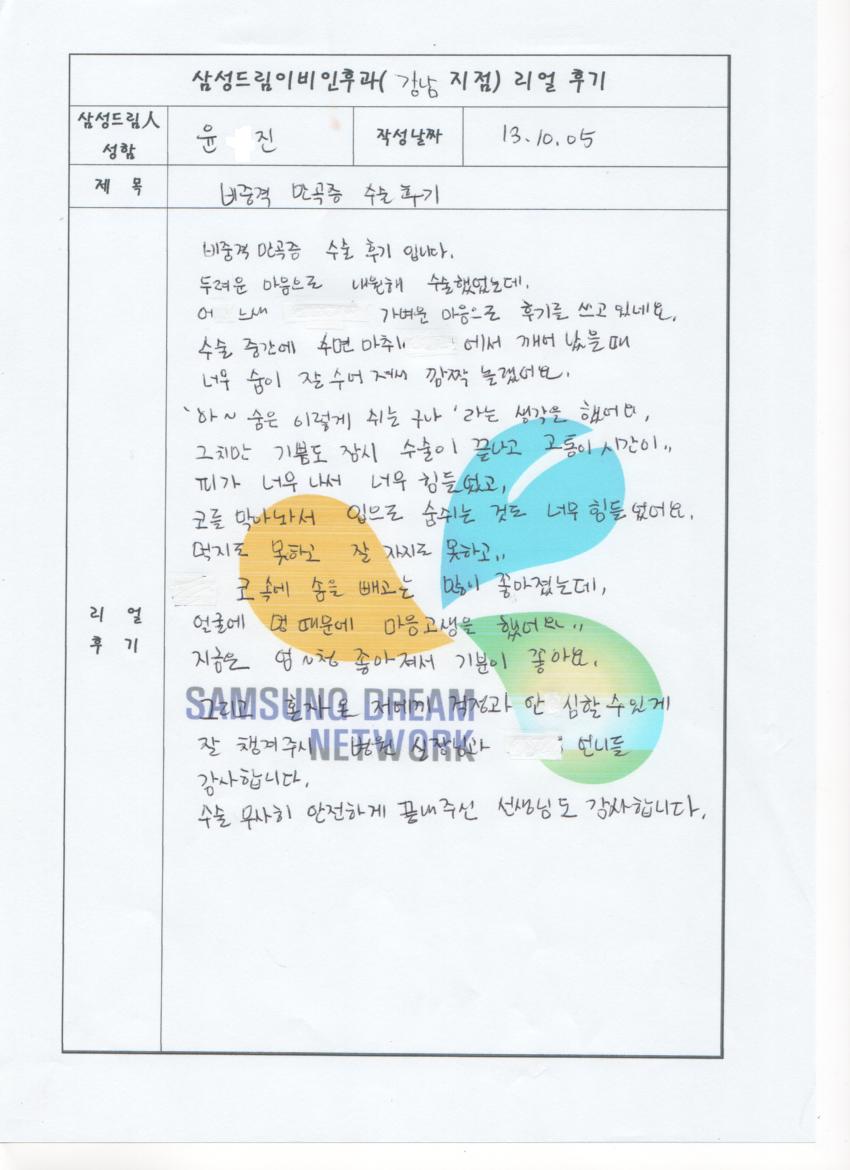 삼성드림이비인후과( 강남 지점) 리얼 후기
삼성드림人 성함
윤 진
작성날짜
13.10.05
제 목
비중격 만곡증 수술 후기
리 얼 후 기
비중격 만곡증 수술 후기 입니다.
두려운 마음으로 내원해 수술했었는데.
어 느새 가벼운 마음으로 후기를 쓰고 있네요.
수술 중간에 수면 마취 에서 깨어 났을때
너무 숨이 잘 쉬어 져서 깜짝 놀랬어요.
'아~ 숨은 이렇게 쉬는 구나' 라는 생각을 했어요.
그치만 기쁨도 잠시 수술이 끝나고 고통이 시간이..
피가 너무 나서 너무 힘들었고,
코를 막아놔서 입으로 숨쉬는 것도 너무 힘들었어요.
먹지도 못하고 잘 자지도 못하고..
코 속에 솜을 빼고는 많이 좋아졌는데,
얼굴에 멍 때문에 마음고생을 했어요..
지금은 엄~청 좋아져서 기분이 좋아요.
그리고 혼자 온 저에게 걱정과 안 심할 수 있게
잘 챙겨주시 병원 실장님과 언니들
감사합니다.
수술 무사히 안전하게 끝내주신 선생님도 감사합니다.
SAMSUNG DREAM
NETWORK